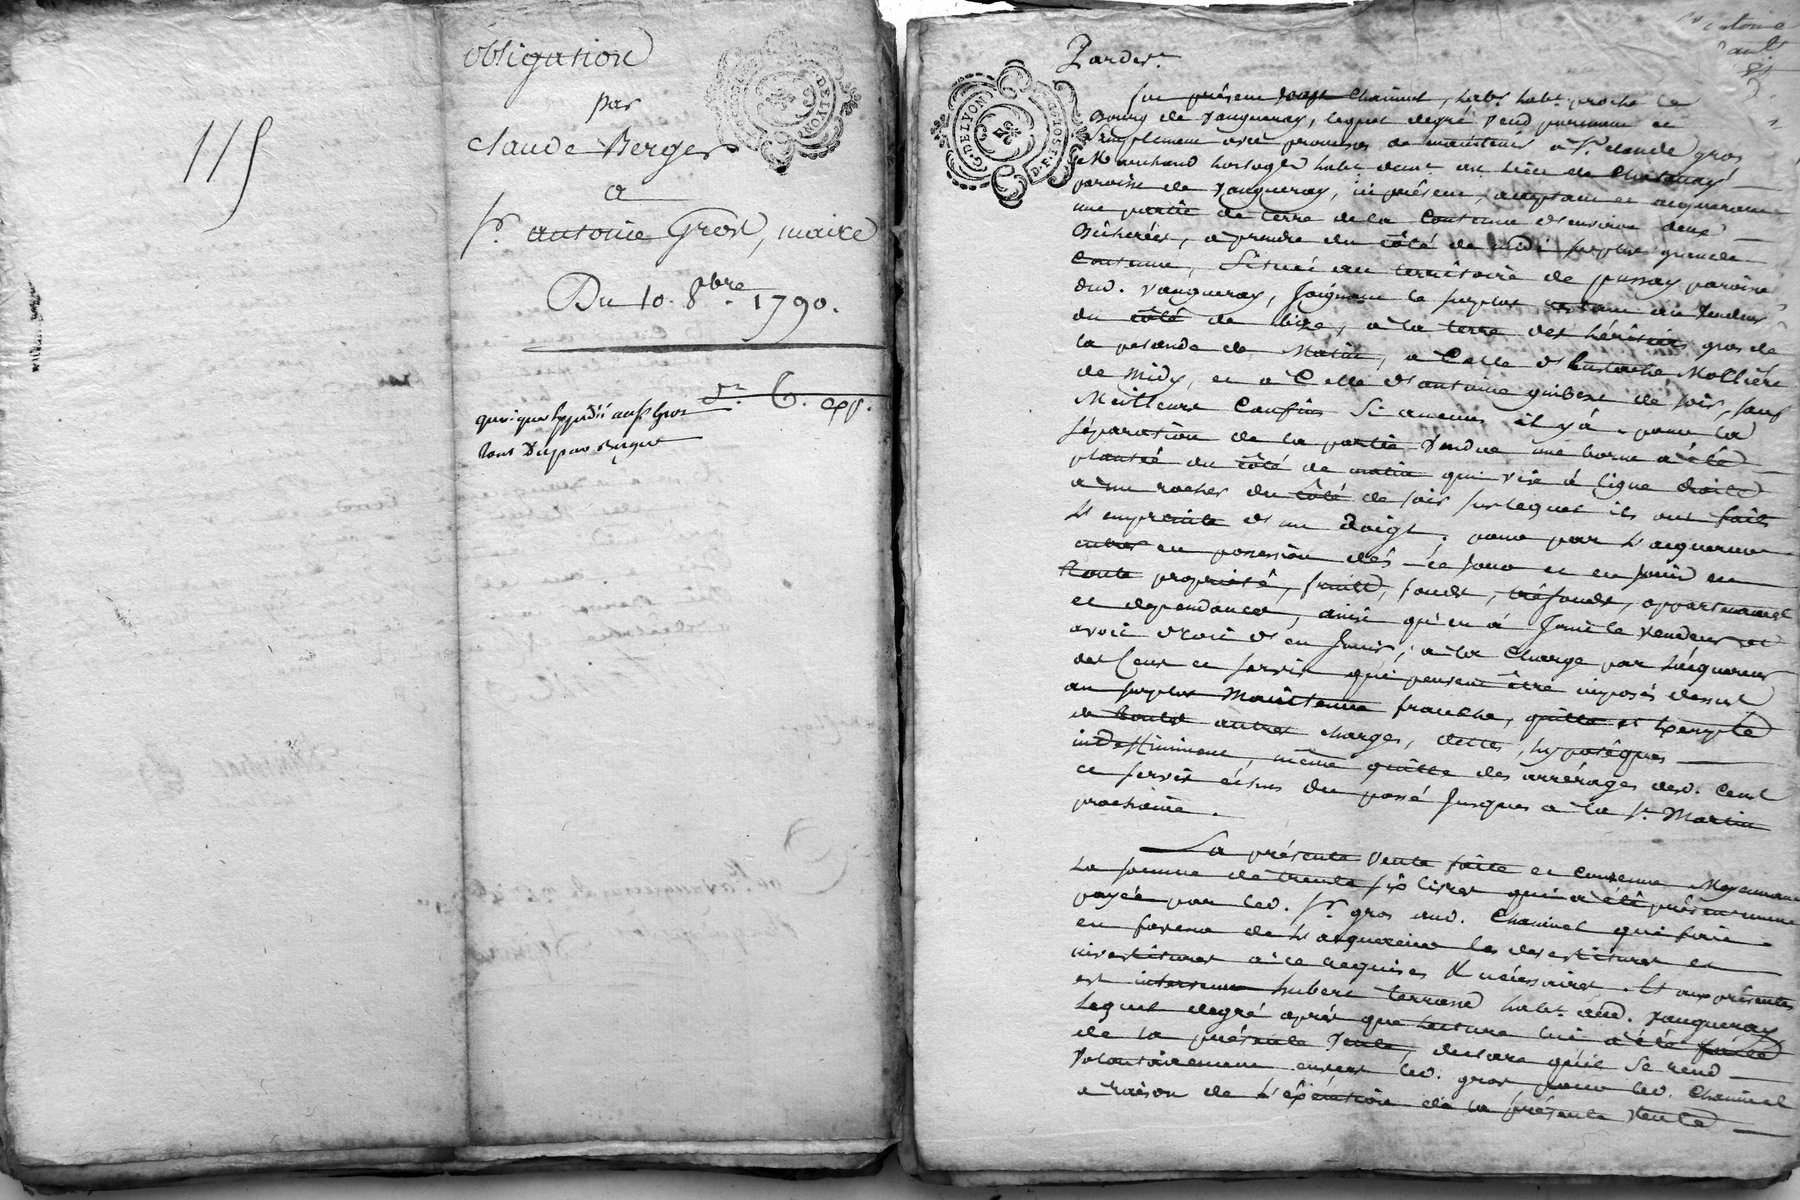 115
obligation
par
claude Berger
a
Sr. antoine Gros, maire
Du 10. 8bre. 1790.
G. DE LYON
Pardt.
G. DE LYON
fut présent Chaminet, habt. proche le
Bourg de Vaugneray, lequel degré vend purement et
simplement avec promesse de maintenir à Sr. claude gros
Marchand horloger habt. au lieu de
paroisse de Vaugneray, ici présent, acceptant et acquerant
une partie de terre de la contenue d'environ deux
Bicherées, à prendre du côté de midi sur plus grande
contenue, située au territoire de pussay paroisse
dud. Vaugneray, joignant le surplus restant au vendeur
du côté de bize, à la terre des héritiers gros de
la pesande de Matin, à celle d'Eustache Mollière
de midy, et à celle d'antoine guibert de soir, sauf
Meilleurs confins si aucuns il y à. pour la
séparation de la partie vendue une borne a été
plantée du côté de matin qui vise à ligne droite
à un rocher du côté de soir sur lequel ils ont fait
l'empreinte d'un doigt. pour par l'acquereur
entrer en possession dés-ce jour et en jouir en
toute propriété, fruits, fonds, tréfonds, appartenances
et dependances, ainsi qu'en à joui le vendeur et
avoit droit d'en jouir; à la charge par l'acquereur
des Cens et servis qui peuvent être imposés dessus
au surplus Maintenue franche, quitte et Exempte
de toutes autres charges, dettes, hypotêques
indistinctement, même quitte des arrérages desd. Cens
et servis échus du passé jusques à la St. Martin
prochaine.
La présente vente faite et convenue Moyennant
la somme de trente six livres qui a été présentement
payée par led. Sr. gros aud. Chaminet qui fait
en faveur de l'acquereur les devestitures et
investitures à ce requises & nécessaires. Et aux présentes
est intervenu hubert terrasse habt. aud. Vaugneray
lequel degré après que lecture lui a été faite
de la présente Vente, declare qu'il se rend
volontairement envers led. gros pour led. Chaminet
à raison de l'éxécution de la présente Vente